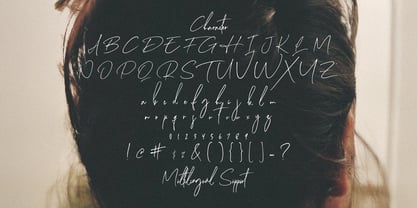 Character
ABCDEFGHIJKLM
NOPQRSTUVWXYZ
abcdefghijklm
nopqrstuvwxyz
0123456789
!@#$%&(){}[]-=?
Multilingual Support